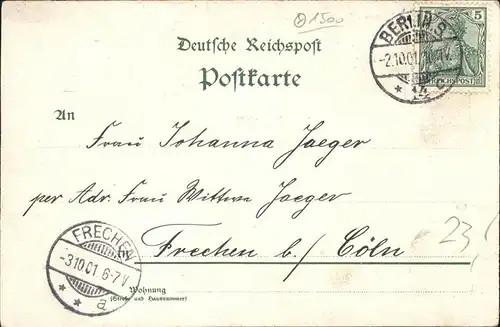 1500
BERLIN S
-2.10.01. 10-11V.
* 14
5
REICHSPOST
Deutsche Reichspost
Postkarte
An
Frau Johanna Jaeger
per Adr. Frau Wittwe Jaeger
Frechen b./ Cöln
23
FRECHEN
-3.10.01. 6-7V.
* * a
Wohnung
(Straße und Hausnummer)